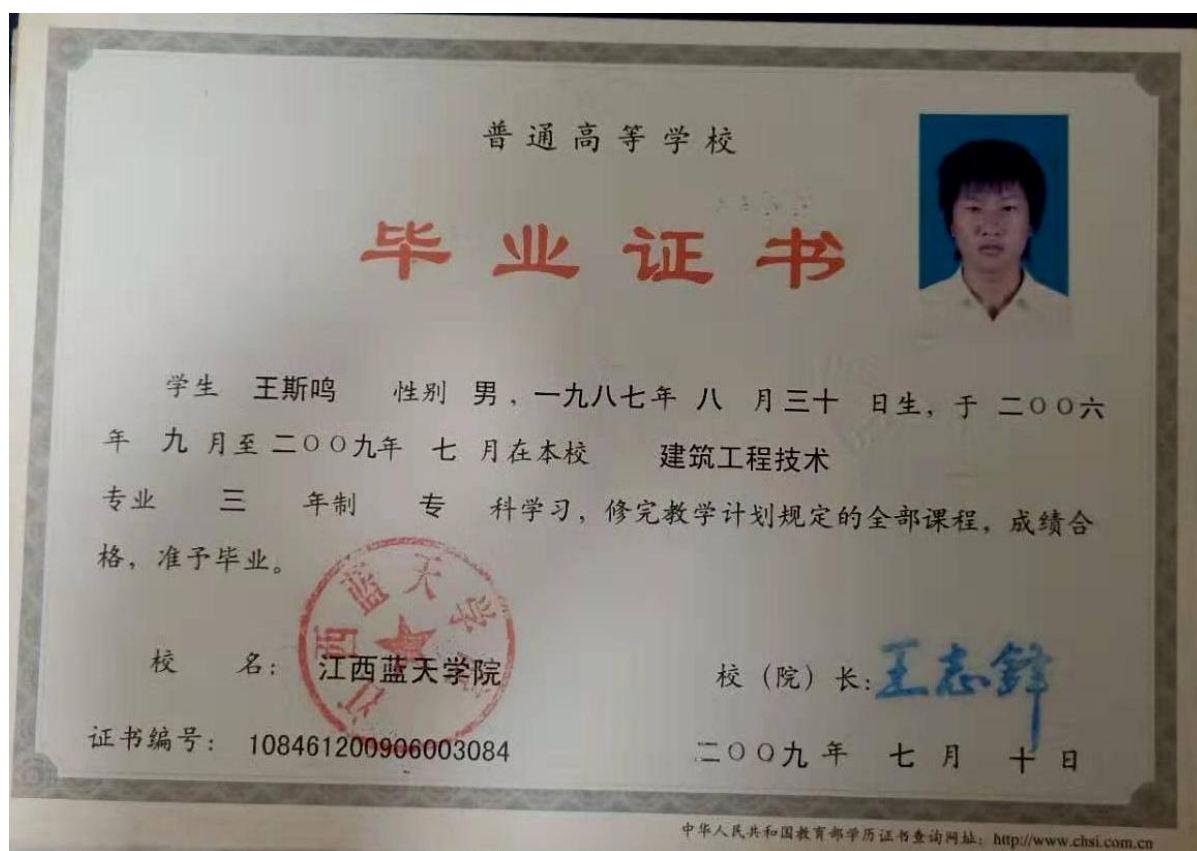 普通高等学校
毕业证书
学生 王斯鸣 性别 男，一九八七年 八 月三十 日生，于 二〇〇六
年 九 月至 二〇〇九年 七 月在本校 建筑工程技术
专业 三 年制 专 科学习，修完教学计划规定的全部课程，成绩合
格，准予毕业。
江西蓝天学院
校 名： 江西蓝天学院
校（院）长：王志锋
证书编号： 108461200906003084
二〇〇九 年 七 月 十 日
中华人民共和国教育部学历证书查询网址：http://www.chsi.com.cn